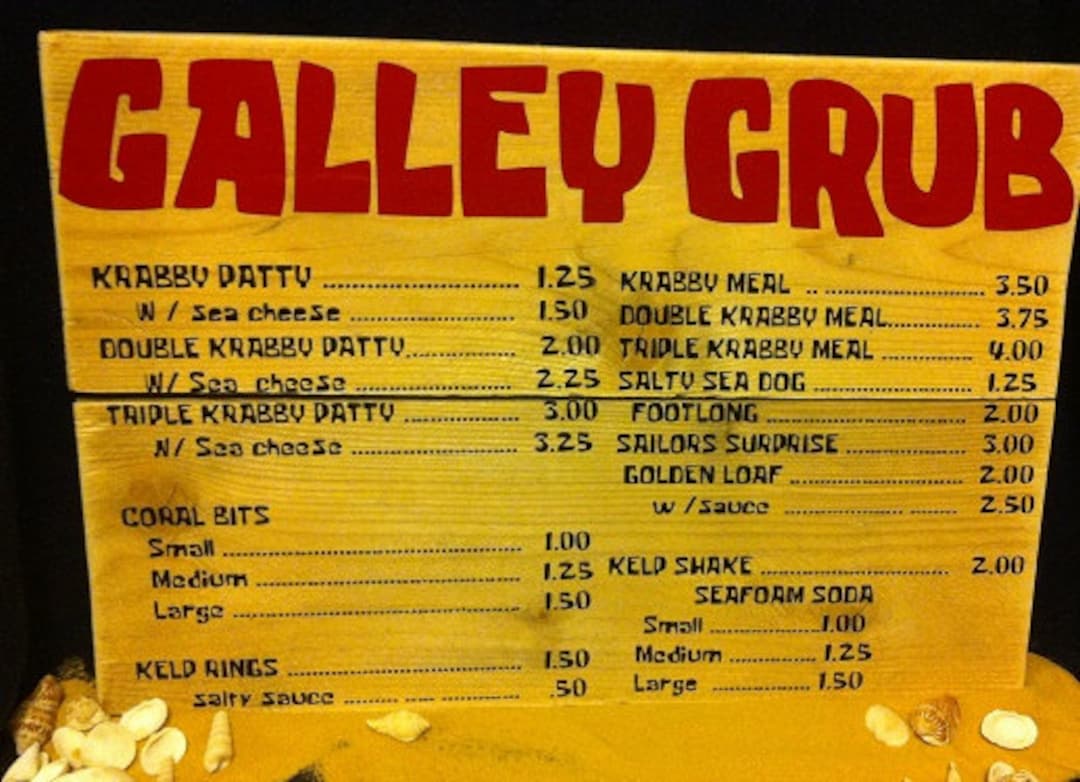 GALLEY GRUB
KRABBY PATTY ........ 1.25
W/ Sea cheese ........ 1.50
DOUBLE KRABBY PATTY ........ 2.00
W/ Sea cheese ........ 2.25
TRIPLE KRABBY PATTY ........ 3.00
W/ Sea cheese ........ 3.25
CORAL BITS
Small ........ 1.00
Medium ........ 1.25
Large ........ 1.50
KELP RINGS ........ 1.50
salty sauce ........ .50
KRABBY MEAL ........ 3.50
DOUBLE KRABBY MEAL ........ 3.75
TRIPLE KRABBY MEAL ........ 4.00
SALTY SEA DOG ........ 1.25
FOOTLONG ........ 2.00
SAILORS SURPRISE ........ 3.00
GOLDEN LOAF ........ 2.00
w/sauce ........ 2.50
KELP SHAKE ........ 2.00
SEAFOAM SODA
Small ........ 1.00
Medium ........ 1.25
Large ........ 1.50